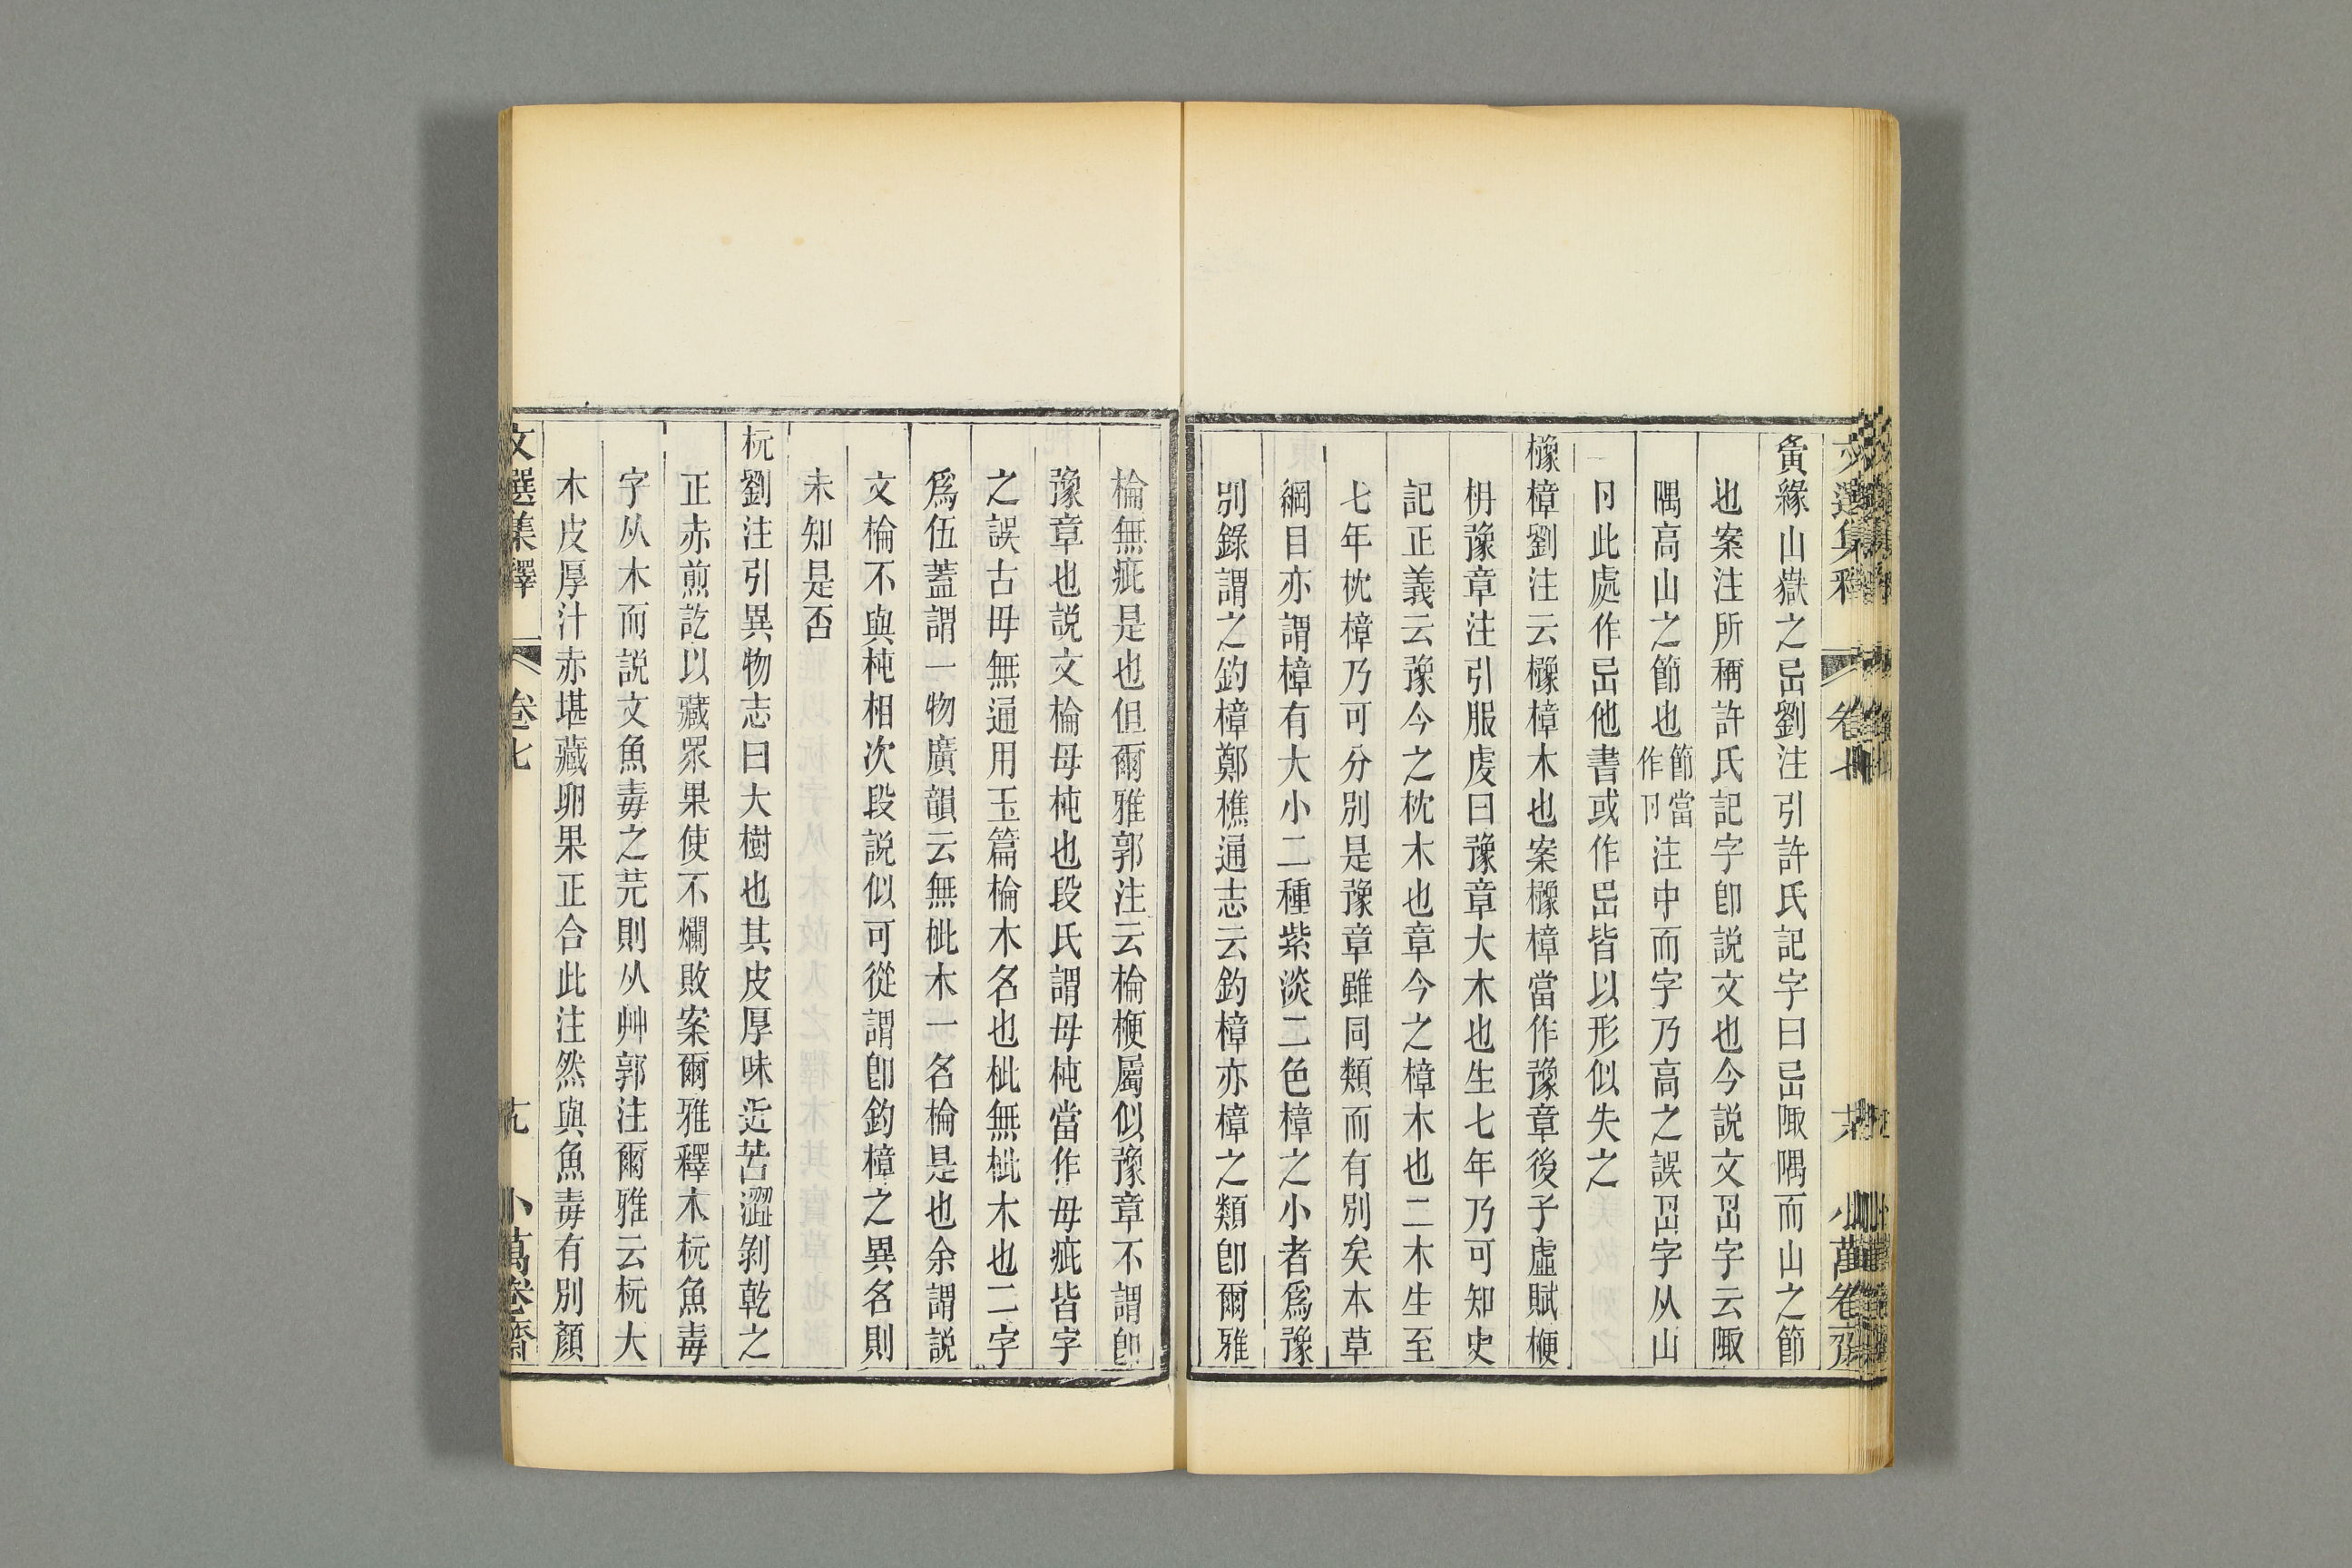 夤緣山嶽之岊劉注引許氏記字曰岊陬隅而山之節
也案注所稱許氏記字卽說文也今說文岊字云陬
隅高山之節也節當作卪注中而字乃高之誤岊字从山
卪此處作岊他書或作㟎皆以形似失之
櫲樟劉注云櫲樟木也案櫲樟當作豫章後子虛賦楩
枏豫章注引服虔曰豫章大木也生七年乃可知史
記正義云豫今之枕木也章今之樟木也二木生至
七年枕樟乃可分別是豫章雖同類而有別矣本草
綱目亦謂樟有大小二種紫淡二色樟之小者爲豫
別錄謂之釣樟鄭樵通志云釣樟亦樟之類卽爾雅
棆無疵是也但爾雅郭注云棆楩屬似豫章不謂卽
豫章也說文棆母杶也段氏謂母杶當作母疵皆字
之誤古毋無通用玉篇棆木名也枇無枇木也二字
爲伍蓋謂一物廣韻云無枇木一名棆是也余謂說
文棆不與杶相次段說似可從謂卽釣樟之異名則
未知是否
杬劉注引異物志曰大樹也其皮厚味近苦澀剝乾之
正赤煎訖以藏眾果使不爛敗案爾雅釋木杬魚毒
字从木而說文魚毒之芫則从艸郭注爾雅云杬大
木皮厚汁赤堪藏卵果正合此注然與魚毒有別顏
文選集釋 卷七 十九 小萬卷齋